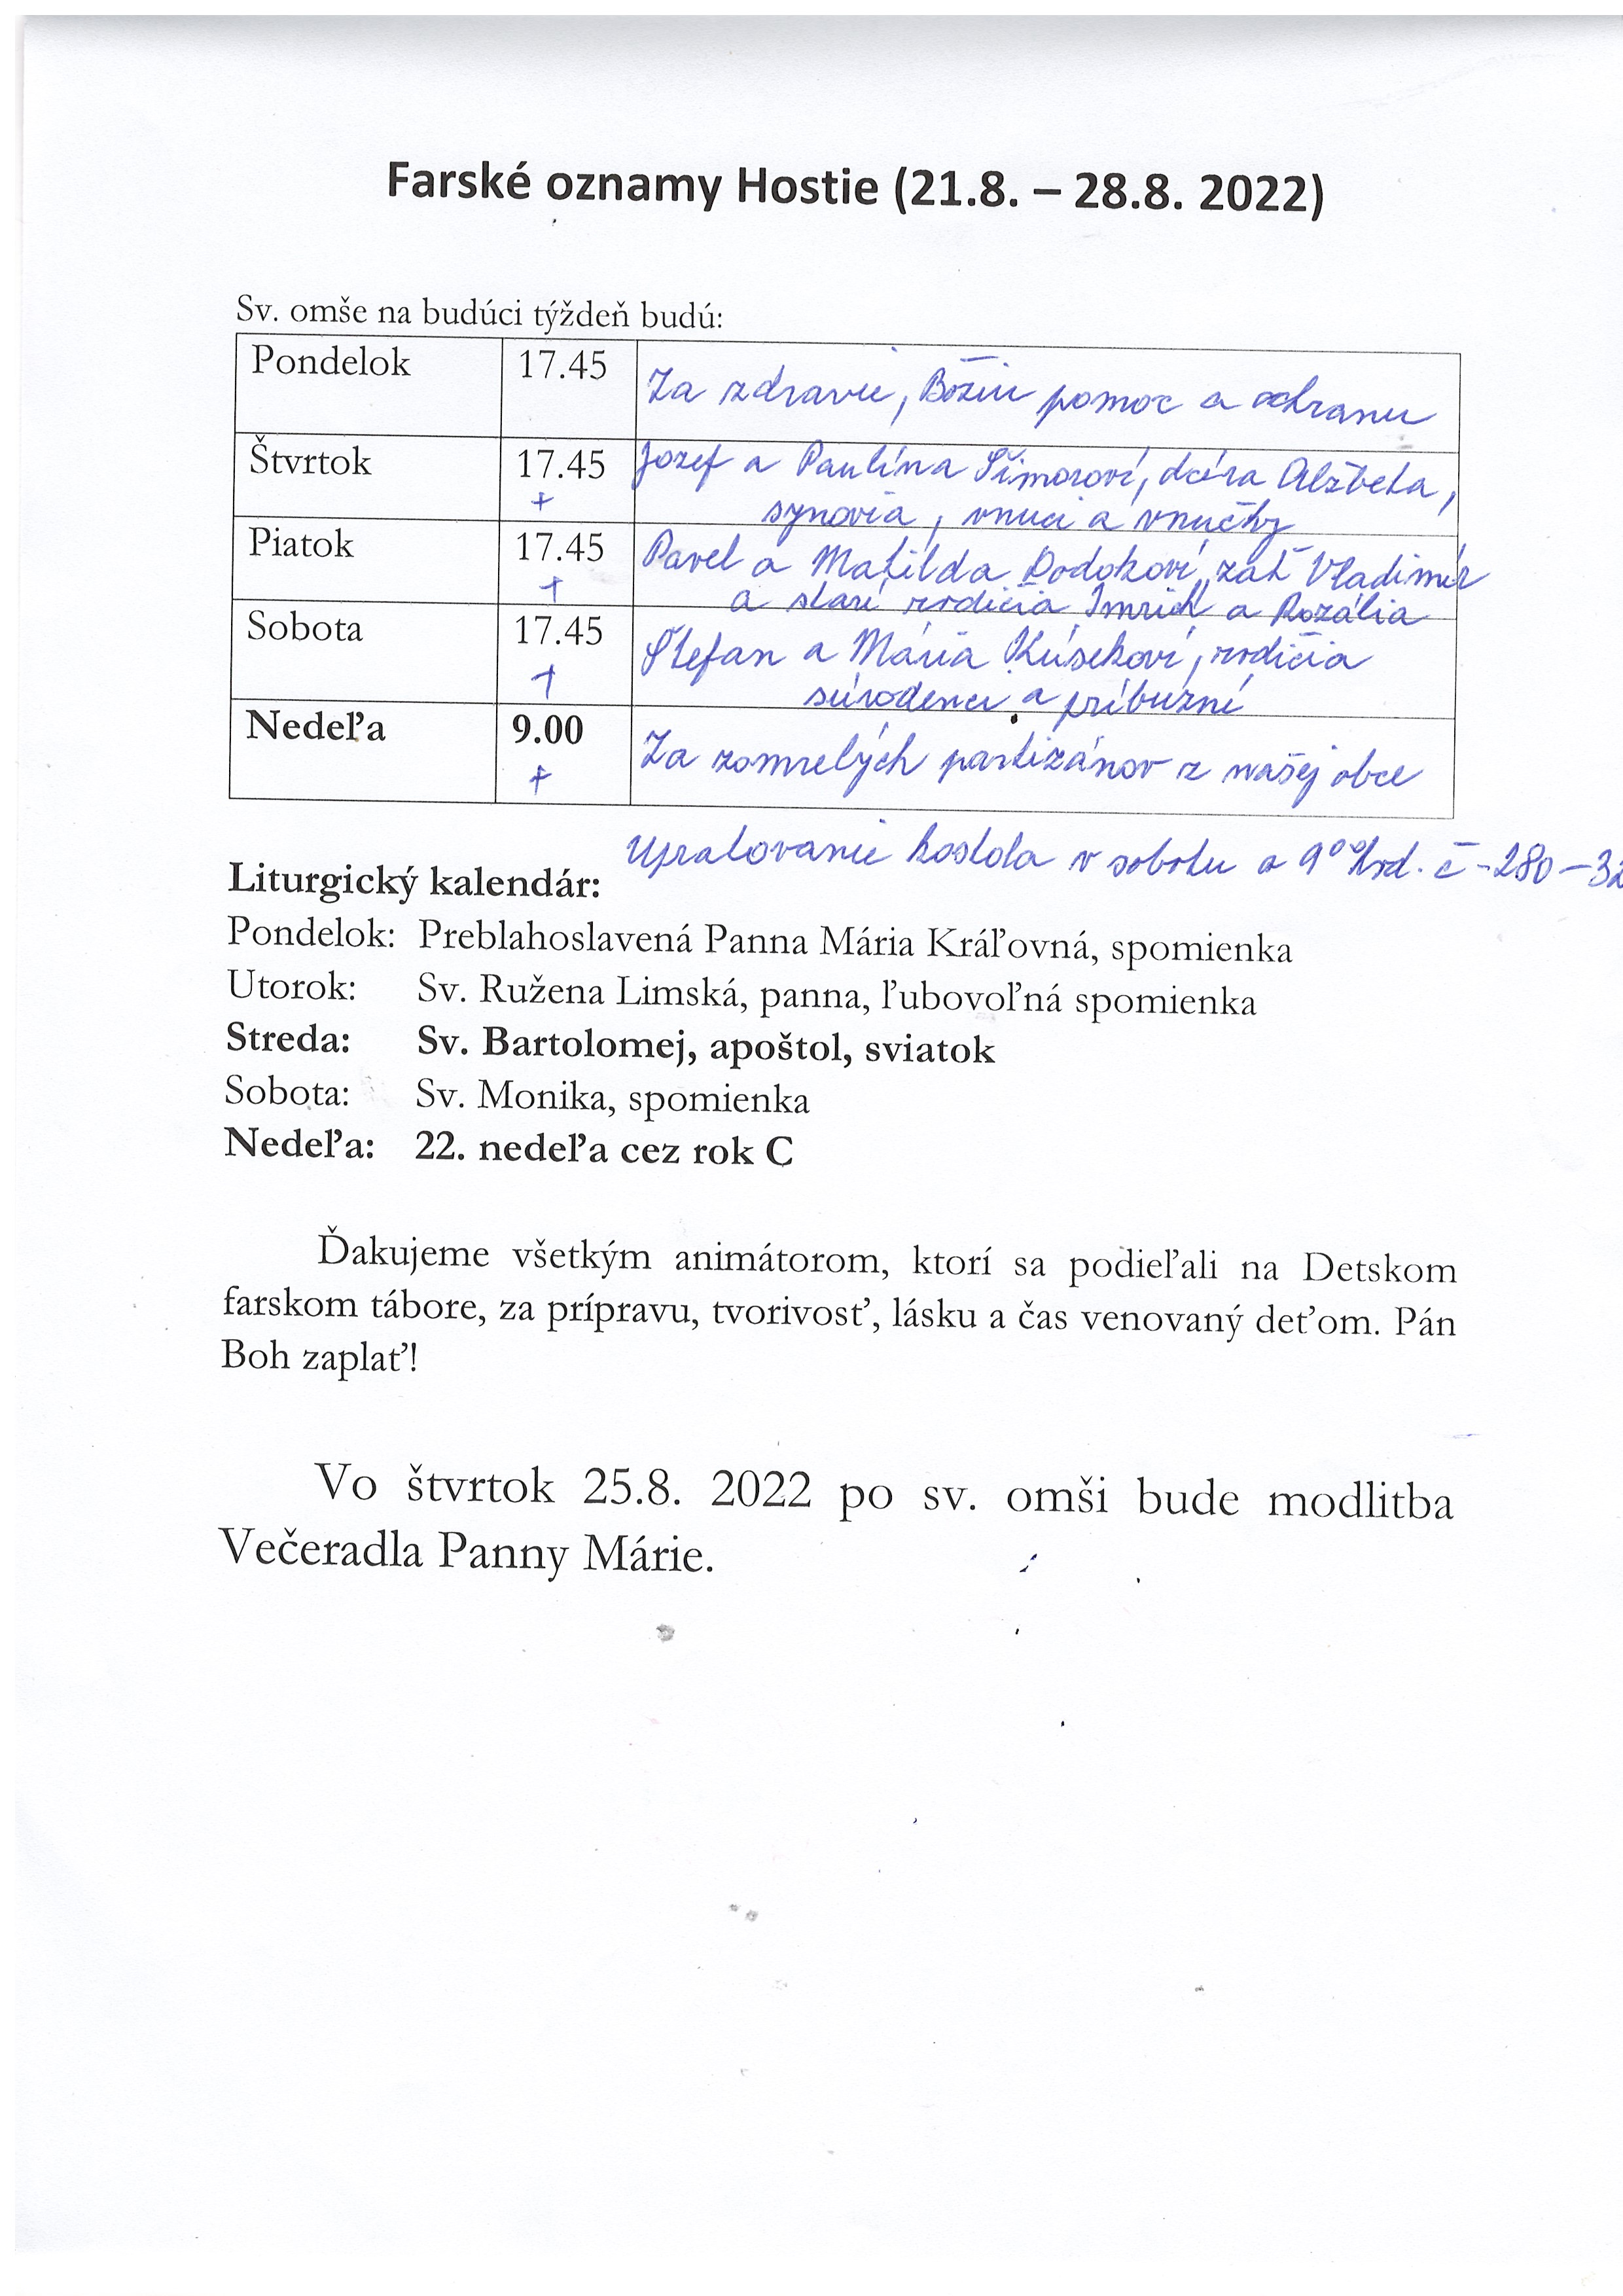 Farské oznamy Hostie (21.8. – 28.8. 2022)
Sv. omše na budúci týždeň budú:
Pondelok 17.45 Za zdravie, Božiu pomoc a ochranu
Štvrtok 17.45 Jozef a Paulína Šimoroví, dcéra Alžbeta,
+ synovia, vnuci a vnučky
Piatok 17.45 Pavel a Matilda Dodokoví, zať Vladimír
+ a starí rodičia Imrich a Rozália
Sobota 17.45 Štefan a Mária Kúsekoví, rodičia
+ súrodenci a príbuzní
Nedeľa 9.00 Za zomrelých partizánov z našej obce
+
Upratovanie kostola v sobotu o 9⁰⁰ č-280-32
Liturgický kalendár:
Pondelok: Preblahoslavená Panna Mária Kráľovná, spomienka
Utorok: Sv. Ružena Limská, panna, ľubovoľná spomienka
Streda: Sv. Bartolomej, apoštol, sviatok
Sobota: Sv. Monika, spomienka
Nedeľa: 22. nedeľa cez rok C
Ďakujeme všetkým animátorom, ktorí sa podieľali na Detskom
farskom tábore, za prípravu, tvorivosť, lásku a čas venovaný deťom. Pán
Boh zaplať!
Vo štvrtok 25.8. 2022 po sv. omši bude modlitba
Večeradla Panny Márie.